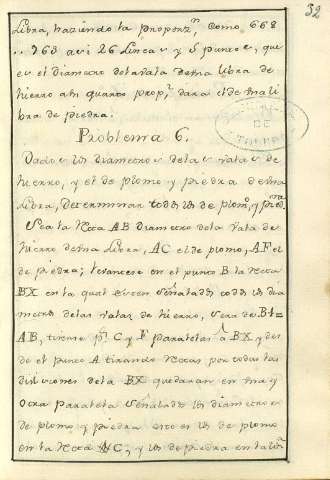 32
Libra, haziendo la proporz.n, como 668
..763 asi 26 Lineas y 5 puntos, que
es el diametro dela vala de una libra de
hierro ahi quarto prop.l dara el de una li
bra de piedra.
Problema 6.
Dados los diametros de las valas de
hierro, y el de plomo y piedra de una
Libra, determinar todos los de plomo, y pied.
Sea la Recta AB diametro dela vala de
hierro de una Libra, AC el de plomo, AF el
de piedra; levantese en el punto B la Recta
BX en la qual esten señalados todos los dia
metros delas valas de hierro, sea de B1=
AB, tirense p.r C y F paralelas à BX y des
de el punto A tirando Rectas por todas las
divisiones dela BX quedaran en una y
otra paralela señalados los diametros
de plomo y piedra esto es los de plomo
en la Recta NC, y los de piedra en la